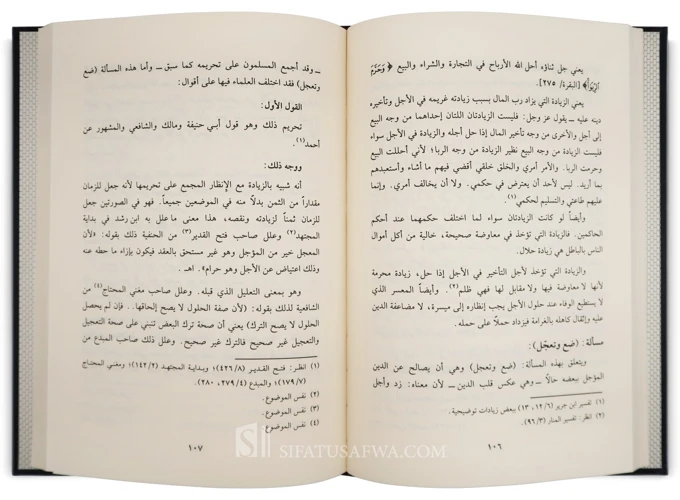 يعني جل ثناؤه أحل الله الأرباح في التجارة والشراء والبيع ﴿ وَحَرَّمَ
ٱلرِّبَوٰا۟ ﴾ [البقرة/ ٢٧٥].
يعني الزيادة التي يزاد رب المال بسبب زيادته غريمه في الأجل وتأخيره
دينه عليه ـ يقول عز وجل: فليست الزيادتان اللتان إحداهما من وجه البيع
إلى أجل والأخرى من وجه تأخير المال إذا حل أجله والزيادة في الأجل سواء
فليست الزيادة من وجه البيع نظير الزيادة من وجه الربا؛ لأني أحللت البيع
وحرمت الربا. والأمر أمري والخلق خلقي أقضي فيهم ما أشاء وأستعبدهم
بما أريد. ليس لأحد أن يعترض في حكمي. ولا أن يخالف أمري. وإنما
عليهم طاعتي والتسليم لحكمي(١).
وأيضاً لو كانت الزيادتان سواء لما اختلف حكمهما عند أحكم
الحاكمين. فالزيادة التي تؤخذ في معاوضة صحيحة، خالية من أكل أموال
الناس بالباطل هي زيادة حلال.
والزيادة التي تؤخذ لأجل التأخير في الأجل إذا حل، زيادة محرمة
لأنها لا معاوضة فيها ولا مقابل لها فهي ظلم(٢). وأيضاً المعسر الذي
لا يستطيع الوفاء عند حلول الأجل يجب إنظاره إلى ميسرة، لا مضاعفة الدين
عليه وإثقال كاهله بالغرامة فيزداد حملاً على حمله.
مسألة: (ضع وتعجّل):
ويتعلق بهذه المسألة: (ضع وتعجل) وهي أن يصالح عن الدين
المؤجل ببعضه حالاً ـ وهي عكس قلب الدين ـ لأن معناه: زد وأجل
(١) تفسير ابن جرير (١٢/٦، ١٣) ببعض زيادات توضيحية.
(٢) انظر: تفسير المنار (٩٦/٣).
١٠٦
ـ وقد أجمع المسلمون على تحريمه كما سبق ـ وأما هذه المسألة (ضع
وتعجل) فقد اختلف العلماء فيها على أقوال:
القول الأول:
تحريم ذلك وهو قول أبي حنيفة ومالك والشافعي والمشهور عن
أحمد(١).
ووجه ذلك:
أنه شبيه بالزيادة مع الإنظار المجمع على تحريمها لأنه جعل للزمان
مقداراً من الثمن بدلاً منه في الموضعين جميعاً. فهو في الصورتين جعل
للزمان ثمناً لزيادته ونقصه، هذا معنى ما علل به ابن رشد في بداية
المجتهد(٢) وعلل صاحب فتح القدير(٣) من الحنفية ذلك بقوله: «لأن
المعجل خير من المؤجل وهو غير مستحق بالعقد فيكون بإزاء ما حطه عنه
وذلك اعتياض عن الأجل وهو حرام». اهـ.
وهو بمعنى التعليل الذي قبله. وعلل صاحب مغني المحتاج(٤) من
الشافعية لذلك بقوله: (لأن صفة الحلول لا يصح إلحاقها.. فإن لم يحصل
الحلول لا يصح الترك) يعني أن صحة ترك البعض تنبني على صحة التعجيل
والتعجيل غير صحيح فالترك غير صحيح. وعلل ذلك صاحب المبدع من
(١) انظر: فتح القدير (٤٢٦/٨)؛ وبداية المجتهد (١٤٢/٢)؛ ومغني المحتاج
(١٧٩/٧)؛ والمبدع (٢٧٩/٤، ٢٨٠).
(٢) نفس الموضوع.
(٣) نفس الموضوع.
(٤) نفس الموضوع.
١٠٧
SIFATUSAFWA.COM